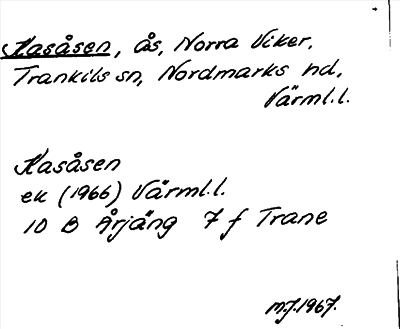 Hasåsen, ås, Norra Viker,
Trankils sn, Nordmarks hd,
Värml.l.
Hasåsen
ek (1966) Värml.l.
10 B Årjäng 7 f Trane
M.J. 1967.